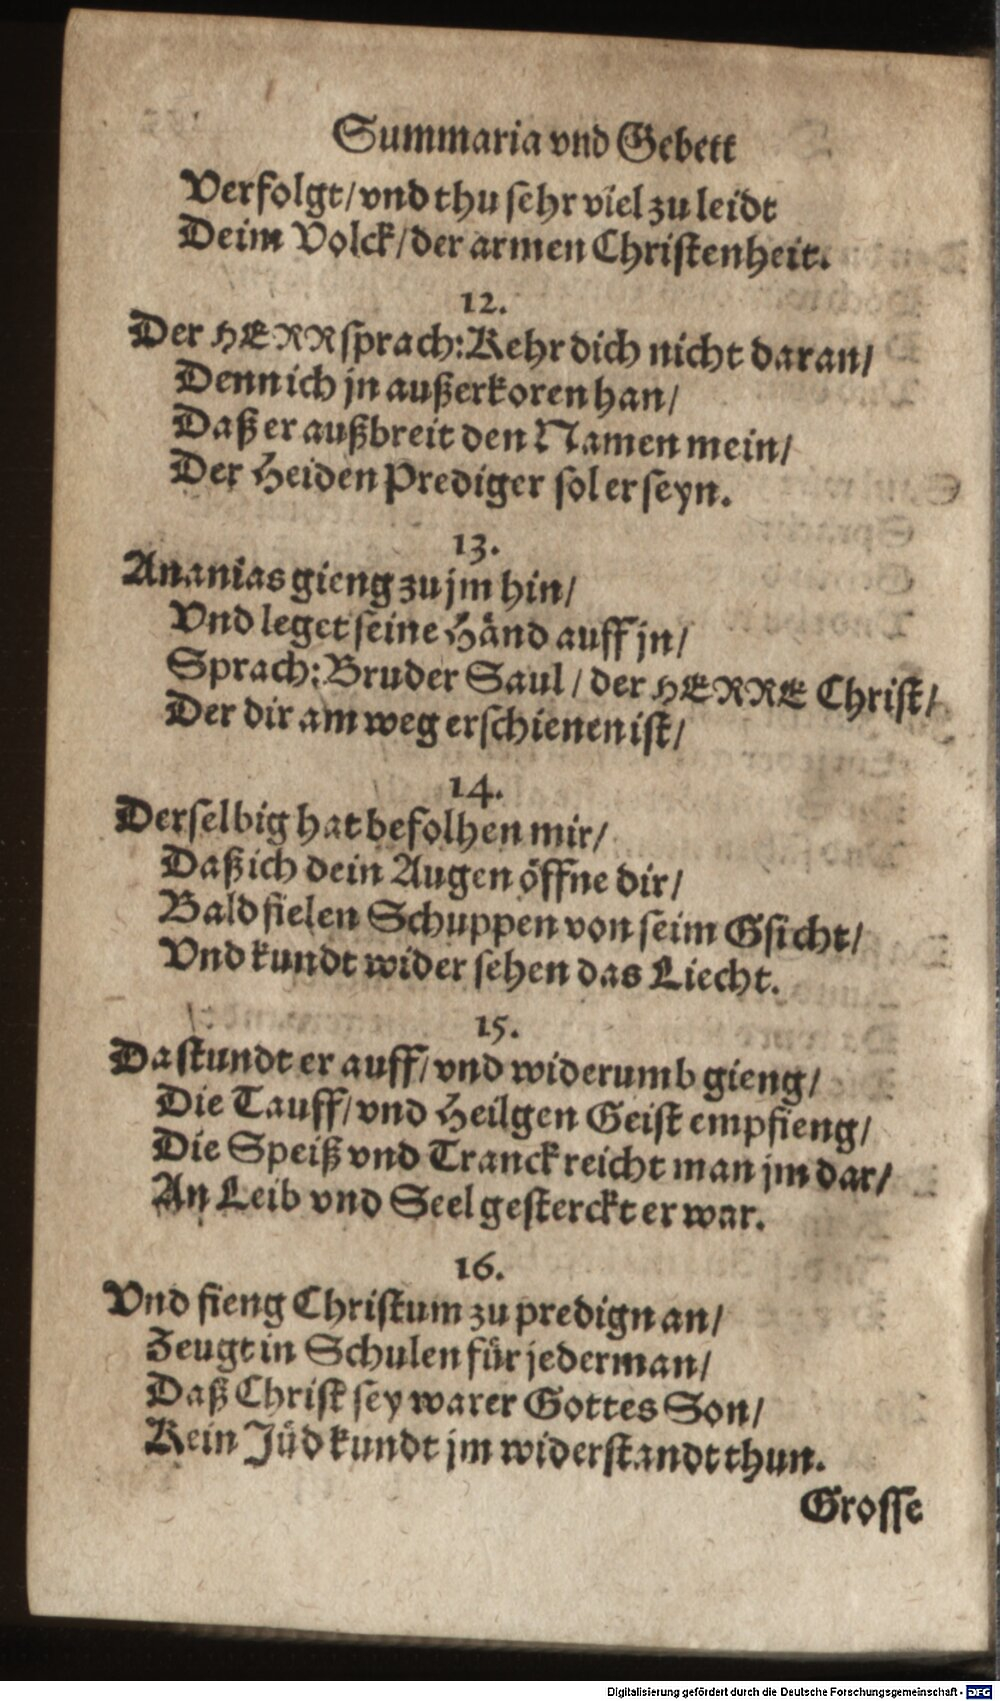 Summaria vnd Gebett
Verfolgt/ vnd thu sehr viel zu leidt
Deim Volck/ der armen Christenheit.
12.
Der HERR sprach: Kehr dich nicht daran/
Denn ich jn außerkoren han/
Daß er außbreit den Namen mein/
Der Heiden Prediger sol er seyn.
13.
Ananias gieng zu jm hin/
Vnd leget seine Händ auff jn/
Sprach: Bruder Saul/ der HERRE Christ/
Der dir am weg erschienen ist/
14.
Derselbig hat befolhen mir/
Daß ich dein Augen öffne dir/
Bald fielen Schuppen von seim Gsicht/
Vnd kundt wider sehen das Liecht.
15.
Da stundt er auff/ vnd widerumb gieng/
Die Tauff/ vnd Heilgen Geist empfieng/
Die Speiß vnd Tranck reicht man jm dar/
An Leib vnd Seel gesterckt er war.
16.
Vnd fieng Christum zu predign an/
Zeugt in Schulen für jederman/
Daß Christ sey warer Gottes Son/
Kein Jüd kundt jm widerstandt thun.
Grosse
Digitalisierung gefördert durch die Deutsche Forschungsgemeinschaft - DFG